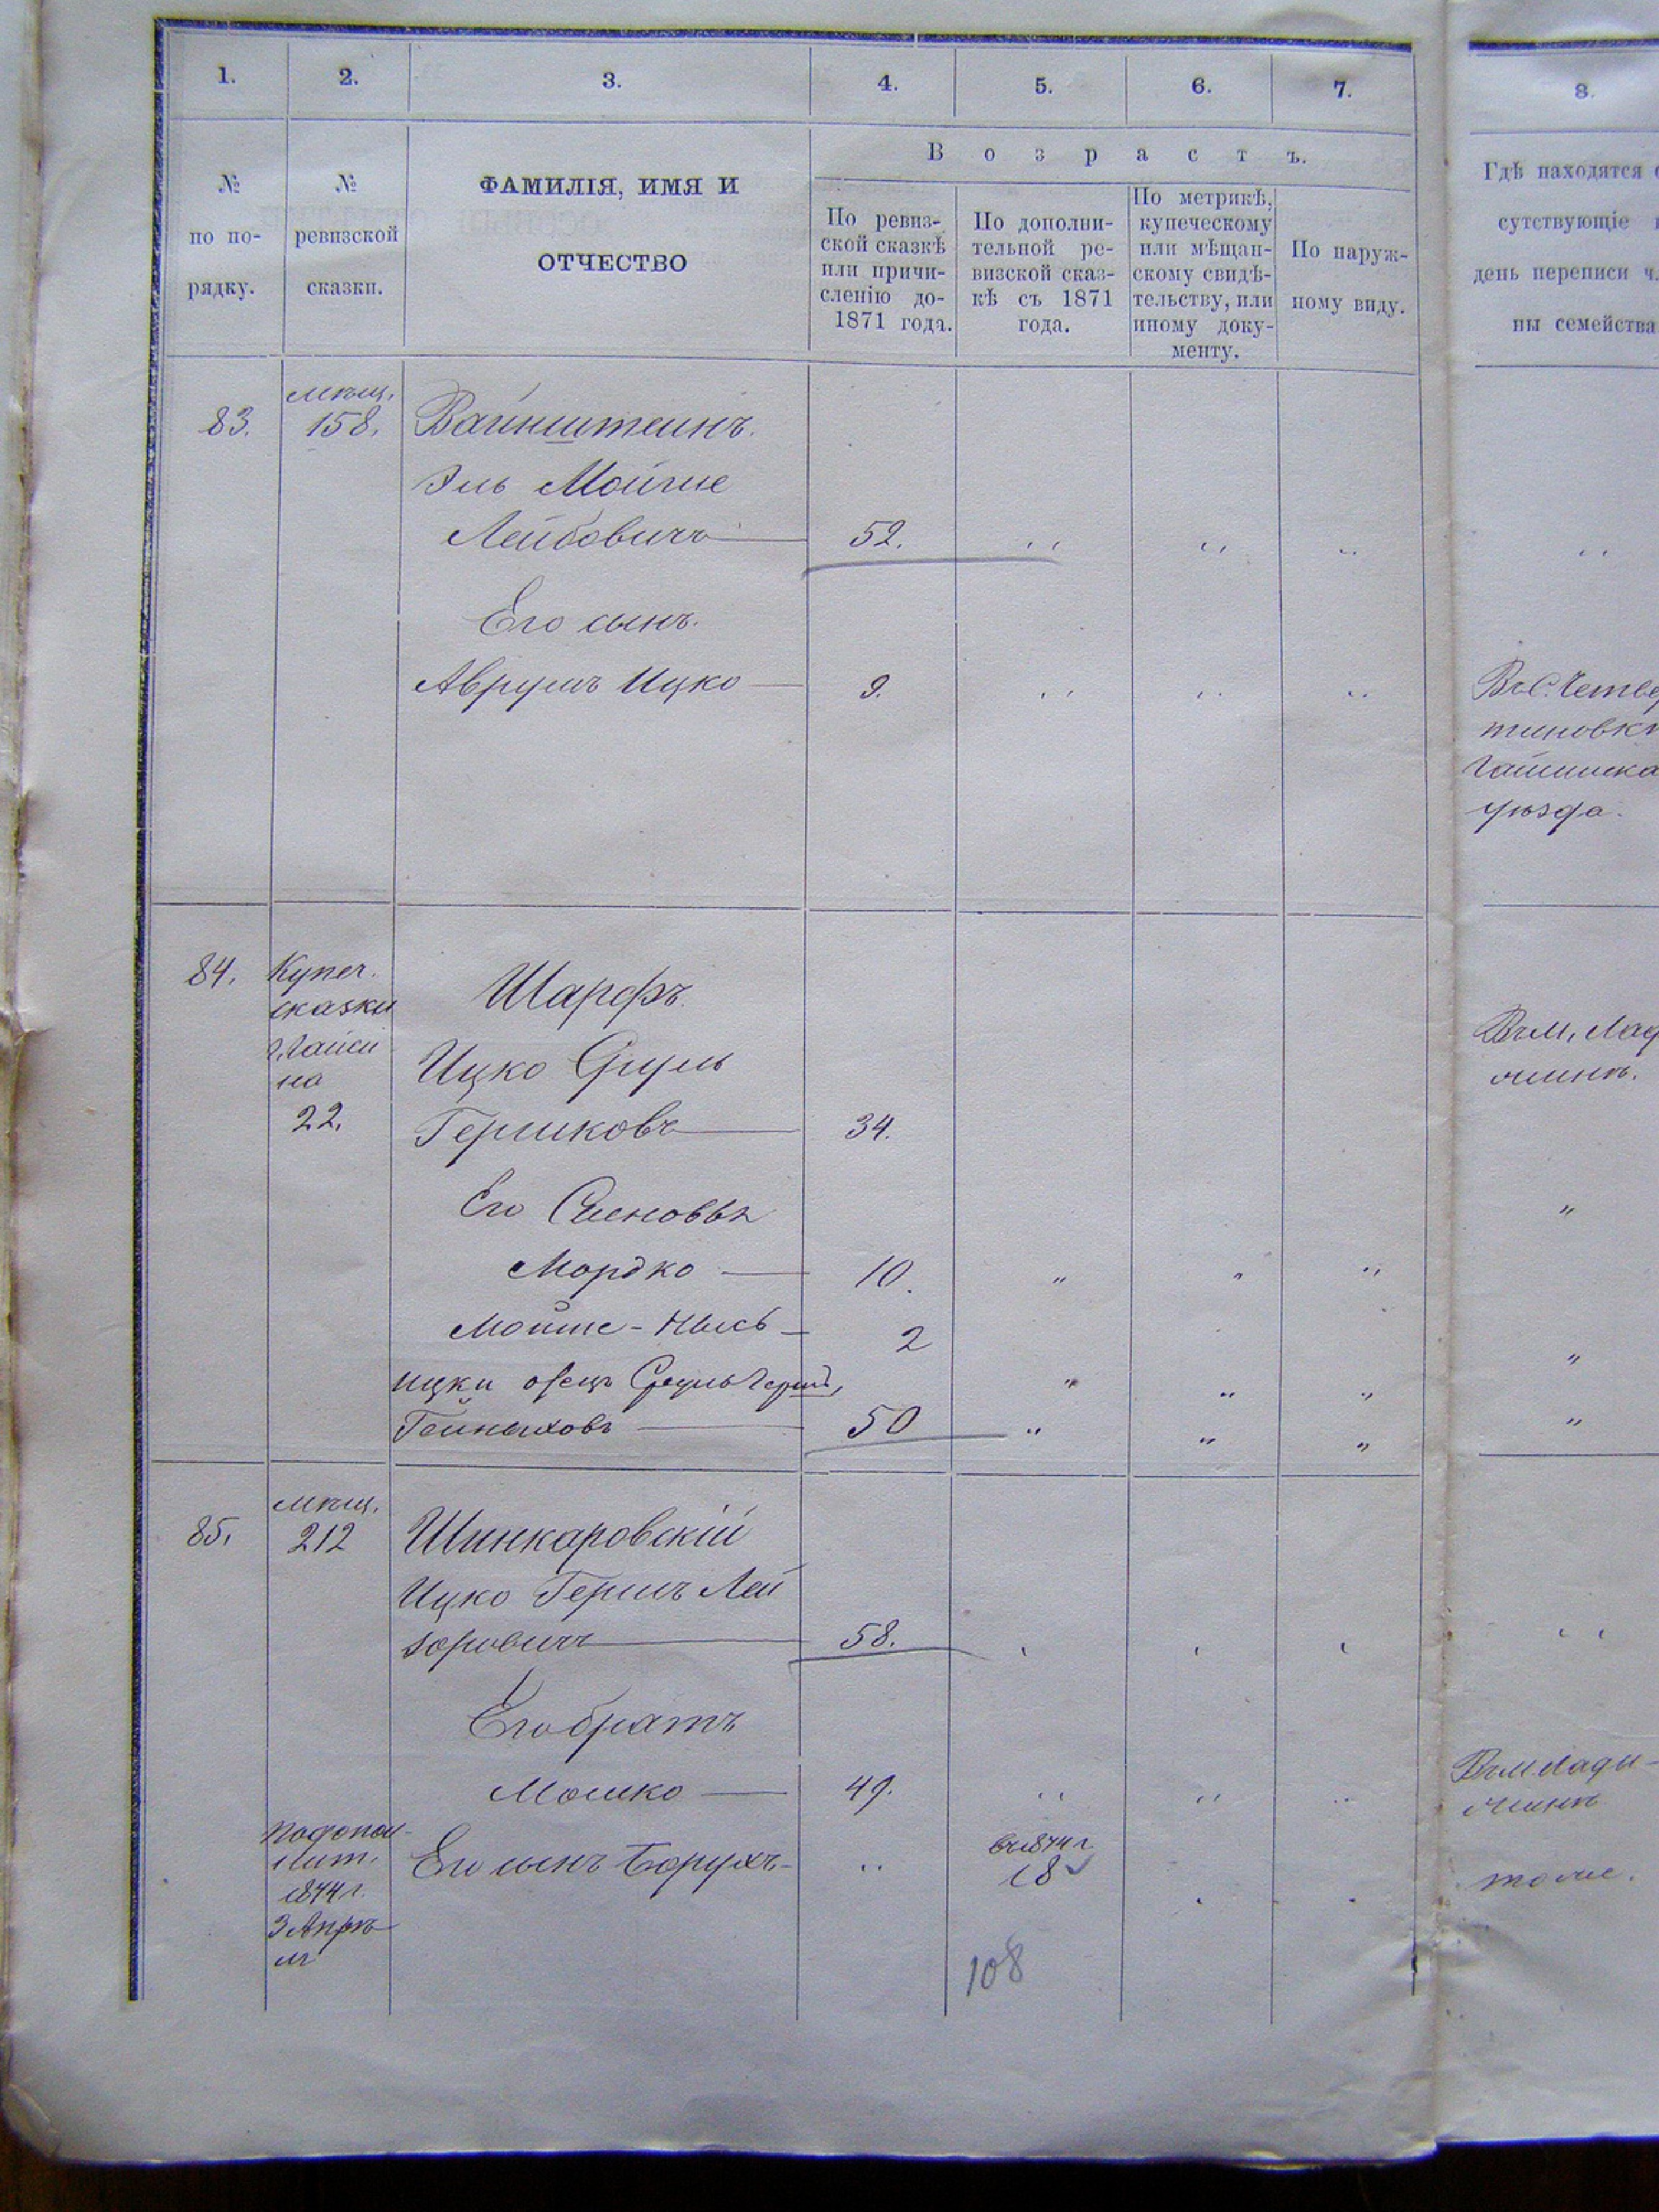 1. 2. 3. 4. 5. 6. 7. 8.
В о з р а с т ъ.
№
по по-
рядку.
№
ревизской
сказки.
ФАМИЛІЯ, ИМЯ И
ОТЧЕСТВО
По ревиз-
ской сказкѣ
или причи-
сленію до-
1871 года.
По дополни-
тельной ре-
визской сказ-
кѣ съ 1871
года.
По метрикѣ,
купеческому
или мѣщан-
скому свидѣ-
тельству, или
иному доку-
менту.
По наруж-
ному виду.
Гдѣ находятся
сутствующіе
день переписи ч
ны семейства
83. мѣщ. 158. Вайнштейнъ.
Эль Мойше
Лейбовичъ 52. " " " "
Его сынъ.
Аврумъ Ицко 9. " " "
Въ С. Четвер
тиновкѣ
Гайсинска
уѣзда.
84. Купеч.
сказки
Гайси
на
22.
Шарфъ.
Ицко Сруль
Гершковъ 34.
Въ м. Лад
ижинѣ.
Его Сыновья "
Мордко 10. " " "
Мойше-Нысь 2 "
ицки отецъ Сруль Герш,
Гейныховъ 50 " " " "
85. мѣщ. 212 Шинкаровскій
Ицко Гершъ Лей
зоровичъ 58. " " " "
Его братъ
Мошко 49. " " "
Въ м. Лади-
жинѣ
по допол-
нит.
1874 г.
3 Апрѣ
ля
Его сынъ Борухъ " въ 1874 г.
18
тоже.
108